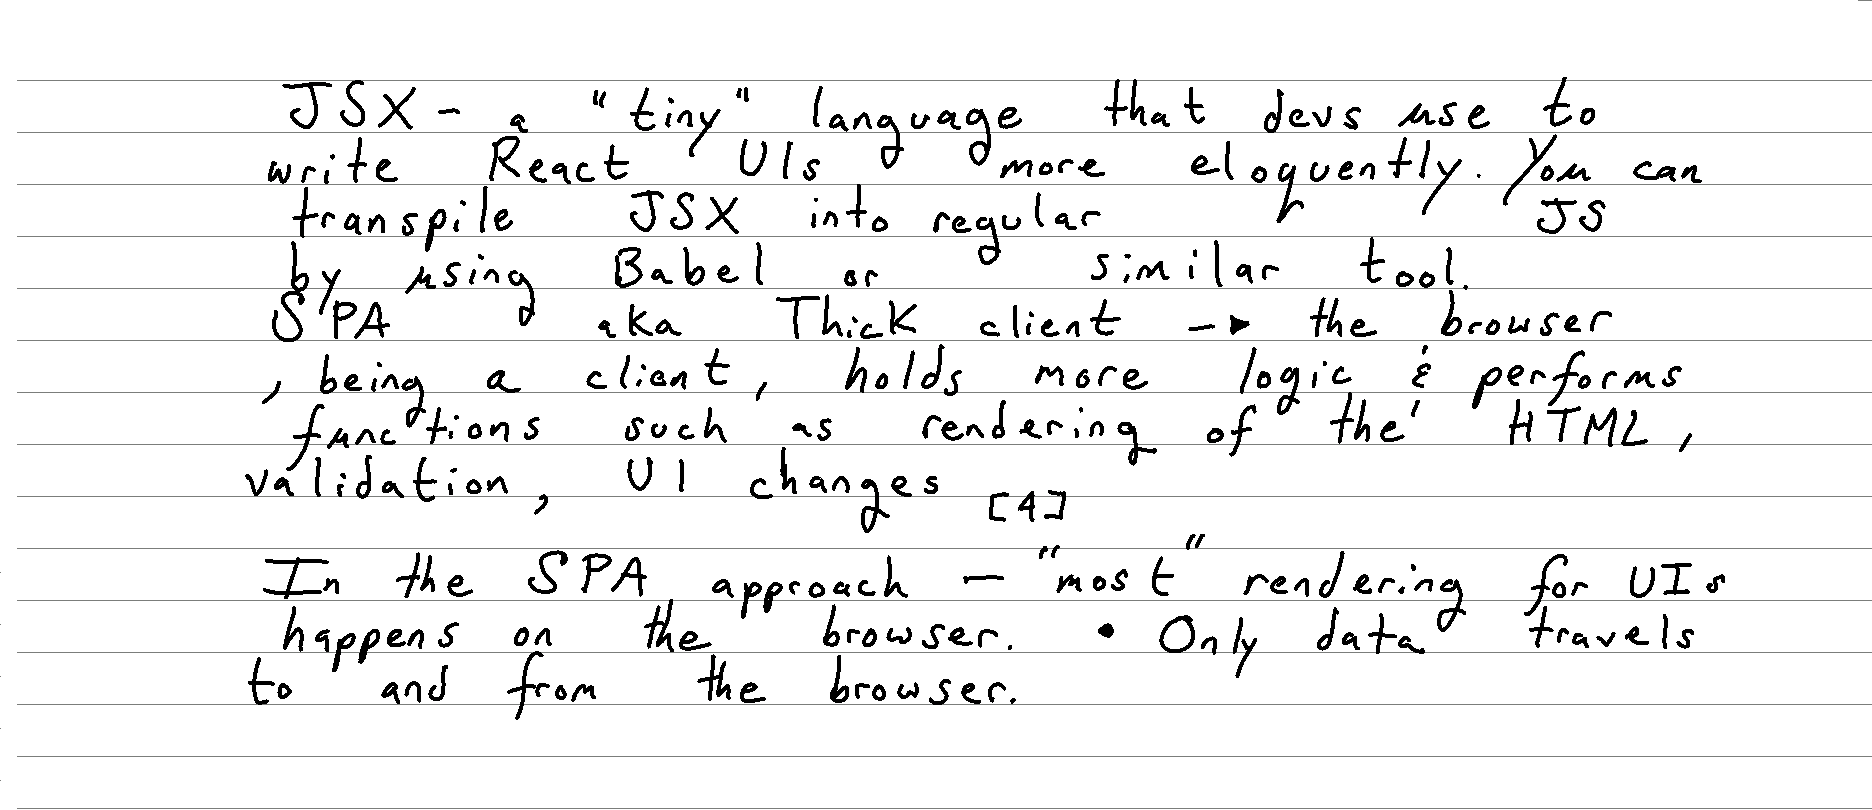 JSX - a "tiny" language that devs use to
write React UIs more eloquently. You can
transpile JSX into regular JS
by using Babel or similar tool.
SPA aka Thick client -> the browser
, being a client, holds more logic & performs
functions such as rendering of the HTML,
validation, UI changes [4]
In the SPA approach - "most" rendering for UIs
happens on the browser. • Only data travels
to and from the browser.